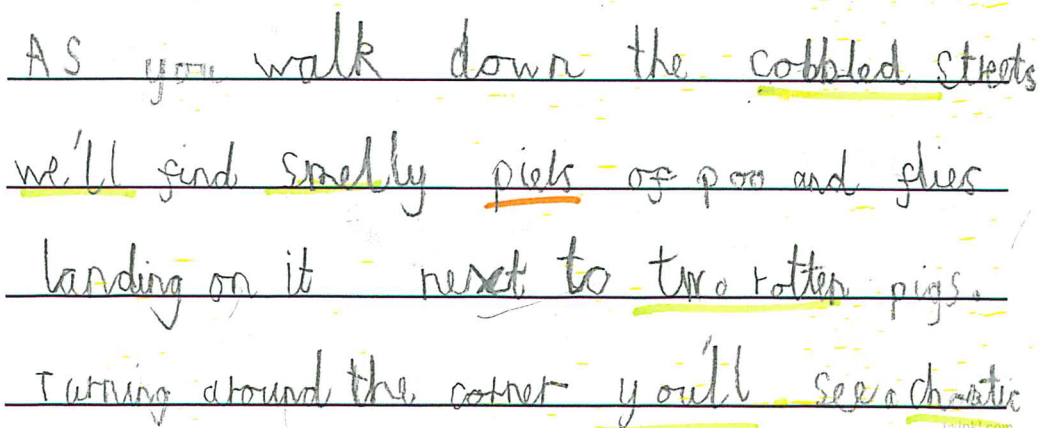 As you walk down the cobbled streets
we'll find smelly piels of poo and flies
landing on it next to two rotten pigs.
Turning around the corner you'll see a